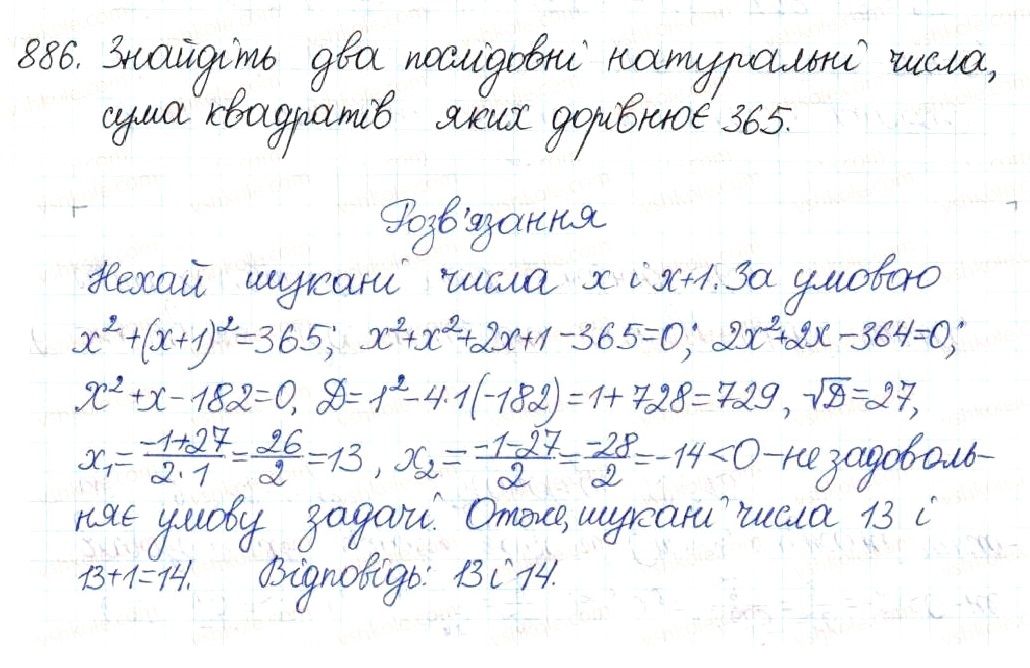 886. Знайдіть два послідовні натуральні числа,
сума квадратів яких дорівнює 365.
Розв'язання
Нехай шукані числа x і x+1. За умовою
x²+(x+1)²=365; x²+x²+2x+1-365=0; 2x²+2x-364=0;
x²+x-182=0, D=1²-4·1(-182)=1+728=729, √D=27,
x₁=(-1+27)/(2·1)=26/2=13, x₂=(-1-27)/2=-28/2=-14<0-не задоволь-
няє умову задачі. Отже, шукані числа 13 і
13+1=14. Відповідь: 13 і 14.